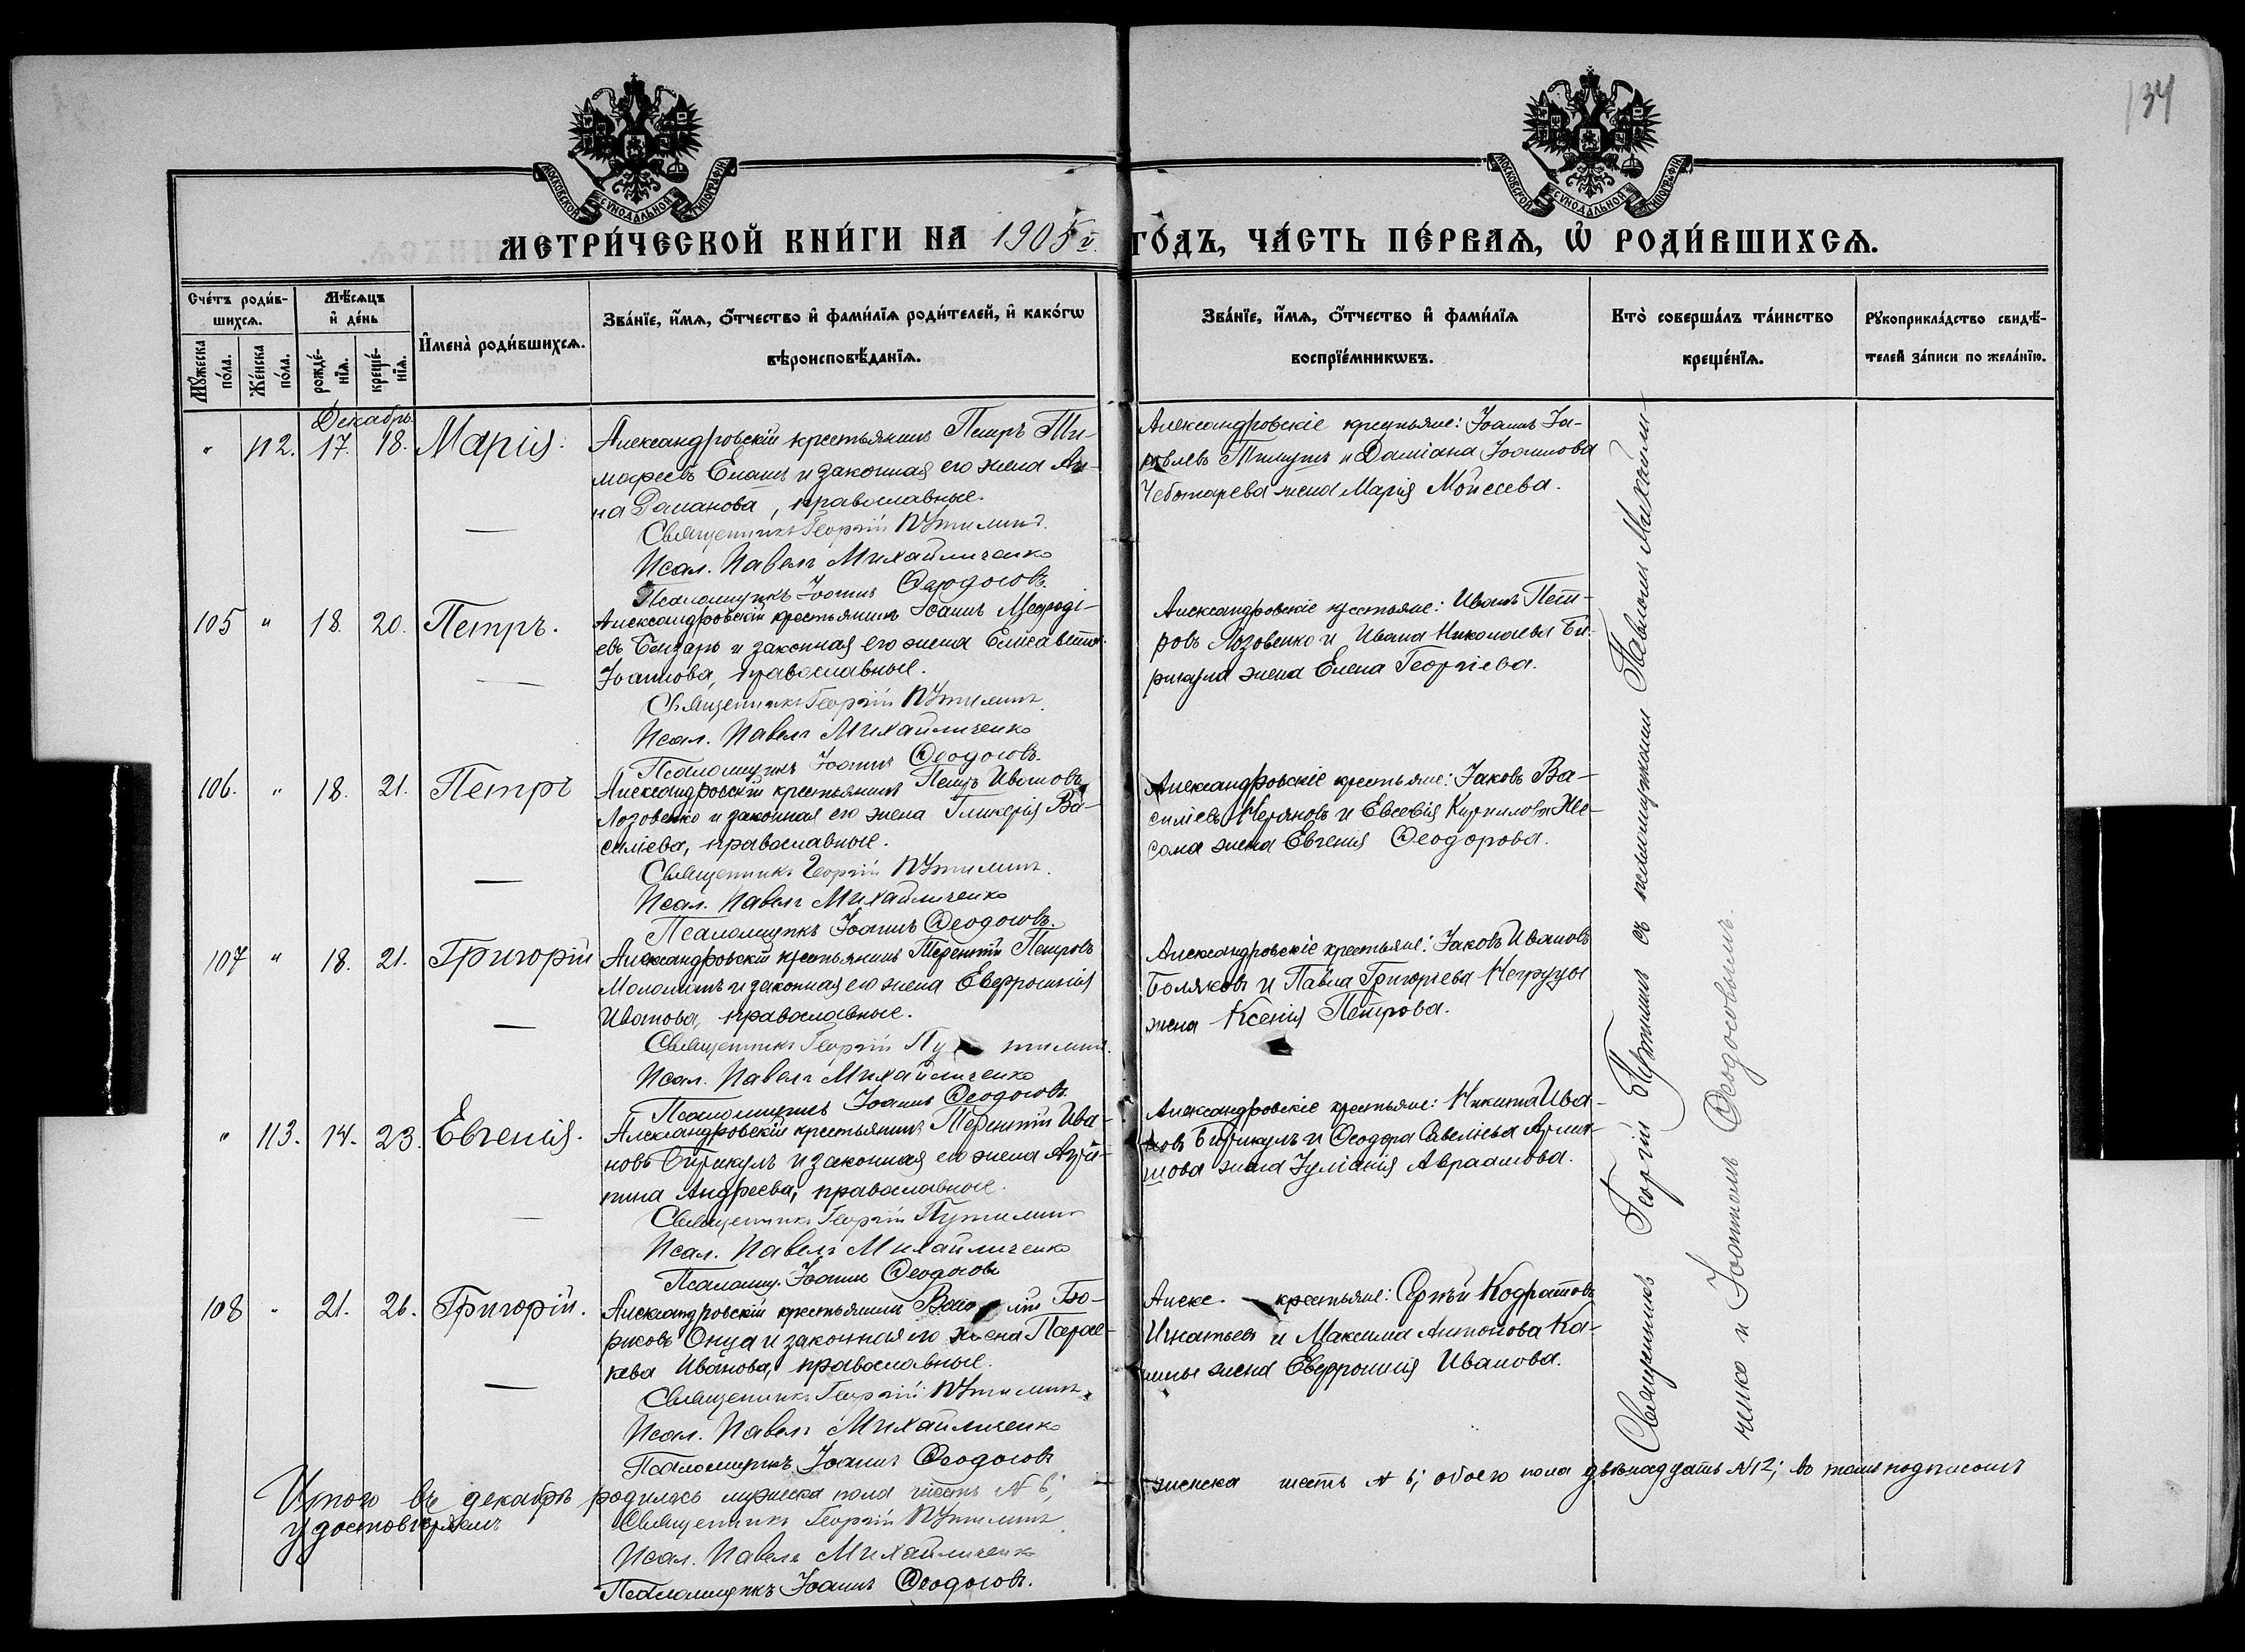 134
МОСКОВСКОЙ СѴНОДАЛЬНОЙ ТИПОГРАФІИ
МОСКОВСКОЙ СѴНОДАЛЬНОЙ ТИПОГРАФІИ
МЕТРИ́ЧЕСКОЙ КНИ́ГИ НА 1905й ГО́ДЪ, ЧА́СТЬ ПЕ́РВАѦ, Ѽ РОДИ́ВШИХСѦ.
Сче́тъ роди́в-
шихсѧ.
Мѣ́сѧцъ
и҆ де́нь
Мꙋ́жеска по́ла.
Же́нска по́ла.
рожде́-нїѧ.
креще́-нїѧ.
И҆мена̀ роди́вшихсѧ.
Зва́нїе, и҆́мѧ, ѻ҆́тчество и҆ фами́лїѧ роди́телей, и҆ како́гѡ
вѣроисповѣ́данїѧ.
Зва́нїе, и҆́мѧ, ѻ҆́тчество и҆ фами́лїѧ
воспрїе́мникѡвъ.
Кто̀ соверша́лъ та́инство
креще́нїѧ.
Рꙋкоприкла́дство свидѣ́-
телей за́писи по жела́нїю.
Декабрь
" 112. 17. 18. Марія.
Александровскій крестьянинъ Петръ Ти-
моѳеевъ Еланъ и законная его жена Ан-
на Романова, православные.
Священникъ Георгій Путилинъ.
Псал. Павелъ Михайличенко
Псаломщикъ Іоаннъ Ѳеодосовъ.
Александровскіе крестьяне: Іоаннъ Іа-
ковлевъ и Даміана Іоаннова
Чеботарева жена Марія Моисеева.
105 " 18. 20. Петръ.
Александровскій крестьянинъ Іоаннъ Меѳоді-
евъ и законная его жена Елисавета
Іоаннова, православные.
Священникъ Георгій Путилинъ.
Псал. Павелъ Михайличенко
Псаломщикъ Іоаннъ Ѳеодосовъ.
Александровскіе крестьяне: Иванъ Пет-
ровъ Лозовенко и Ивана Николаева Би-
рикула жена Елена Георгіева.
106. " 18. 21. Петръ
Александровскій крестьянинъ Петръ Ивановъ
Лозовенко и законная его жена Гликерія Ва-
силіева, православные.
Священникъ Георгій Путилинъ.
Псал. Павелъ Михайличенко
Псаломщикъ Іоаннъ Ѳеодосовъ.
Александровскіе крестьяне: Іаковъ Ва-
силіевъ и Евсевія Кириллова
жена Евгенія Ѳеодорова.
107 " 18. 21. Григорій
Александровскій крестьянинъ Терентій Петровъ
и законная его жена Евфросинія
Иванова, православные.
Священникъ Георгій Путилинъ.
Псал. Павелъ Михайличенко
Псаломщикъ Іоаннъ Ѳеодосовъ
Александровскіе крестьяне: Іаковъ Ивановъ
Боляковъ и Павла Григорьева Негруцы
жена Ксенія Петрова.
" 113. 14. 23. Евгенія.
Александровскій крестьянинъ Терентій Ива-
новъ Бирикулъ и законная его жена Агрип-
пина Андреева, православные.
Священникъ Георгій Путилинъ
Псал. Павелъ Михайличенко
Псаломщ. Іоаннъ Ѳеодосовъ
Александровскіе крестьяне: Никита Ива-
новъ Бирикулъ и Ѳеодора Савеліева
жена Іуліанія Авраамова.
108 " 21. 26. Григорій.
Александровскій крестьянинъ Василій Бо-
рисовъ Онца и законная его жена Парас-
кева Иванова, православные.
Священникъ Георгій Путилинъ.
Псал. Павелъ Михайличенко
Псаломщикъ Іоаннъ Ѳеодосовъ
Алекс. крестьяне: Сергѣй Кодратовъ
Игнатьевъ и Максима Антонова
жена Евфросинія Иванова.
Священникъ Георгій Путилинъ съ псаломщиками Павломъ Михайли-
ченко и Іоанномъ Ѳеодосовымъ.
Итого въ декабрѣ родилось мужеска пола шесть № 6; женска шесть № 6; обоего пола двѣнадцать №12; въ томъ подписомъ
удостовѣряемъ
Священникъ Георгій Путилинъ
Псал. Павелъ Михайличенко
Псаломщикъ Іоаннъ Ѳеодосовъ.